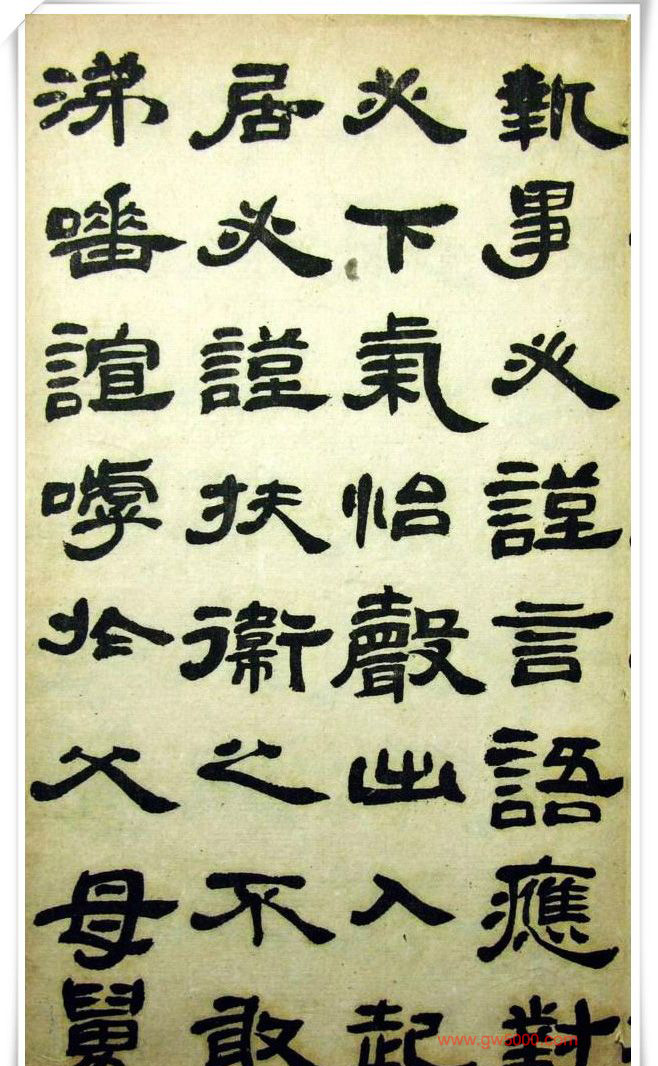 執事必謹言語應對
必下氣怡聲出入起
居必謹扶衛之不敢
涕唾諠嘑於父母舅
www.gw5000.com